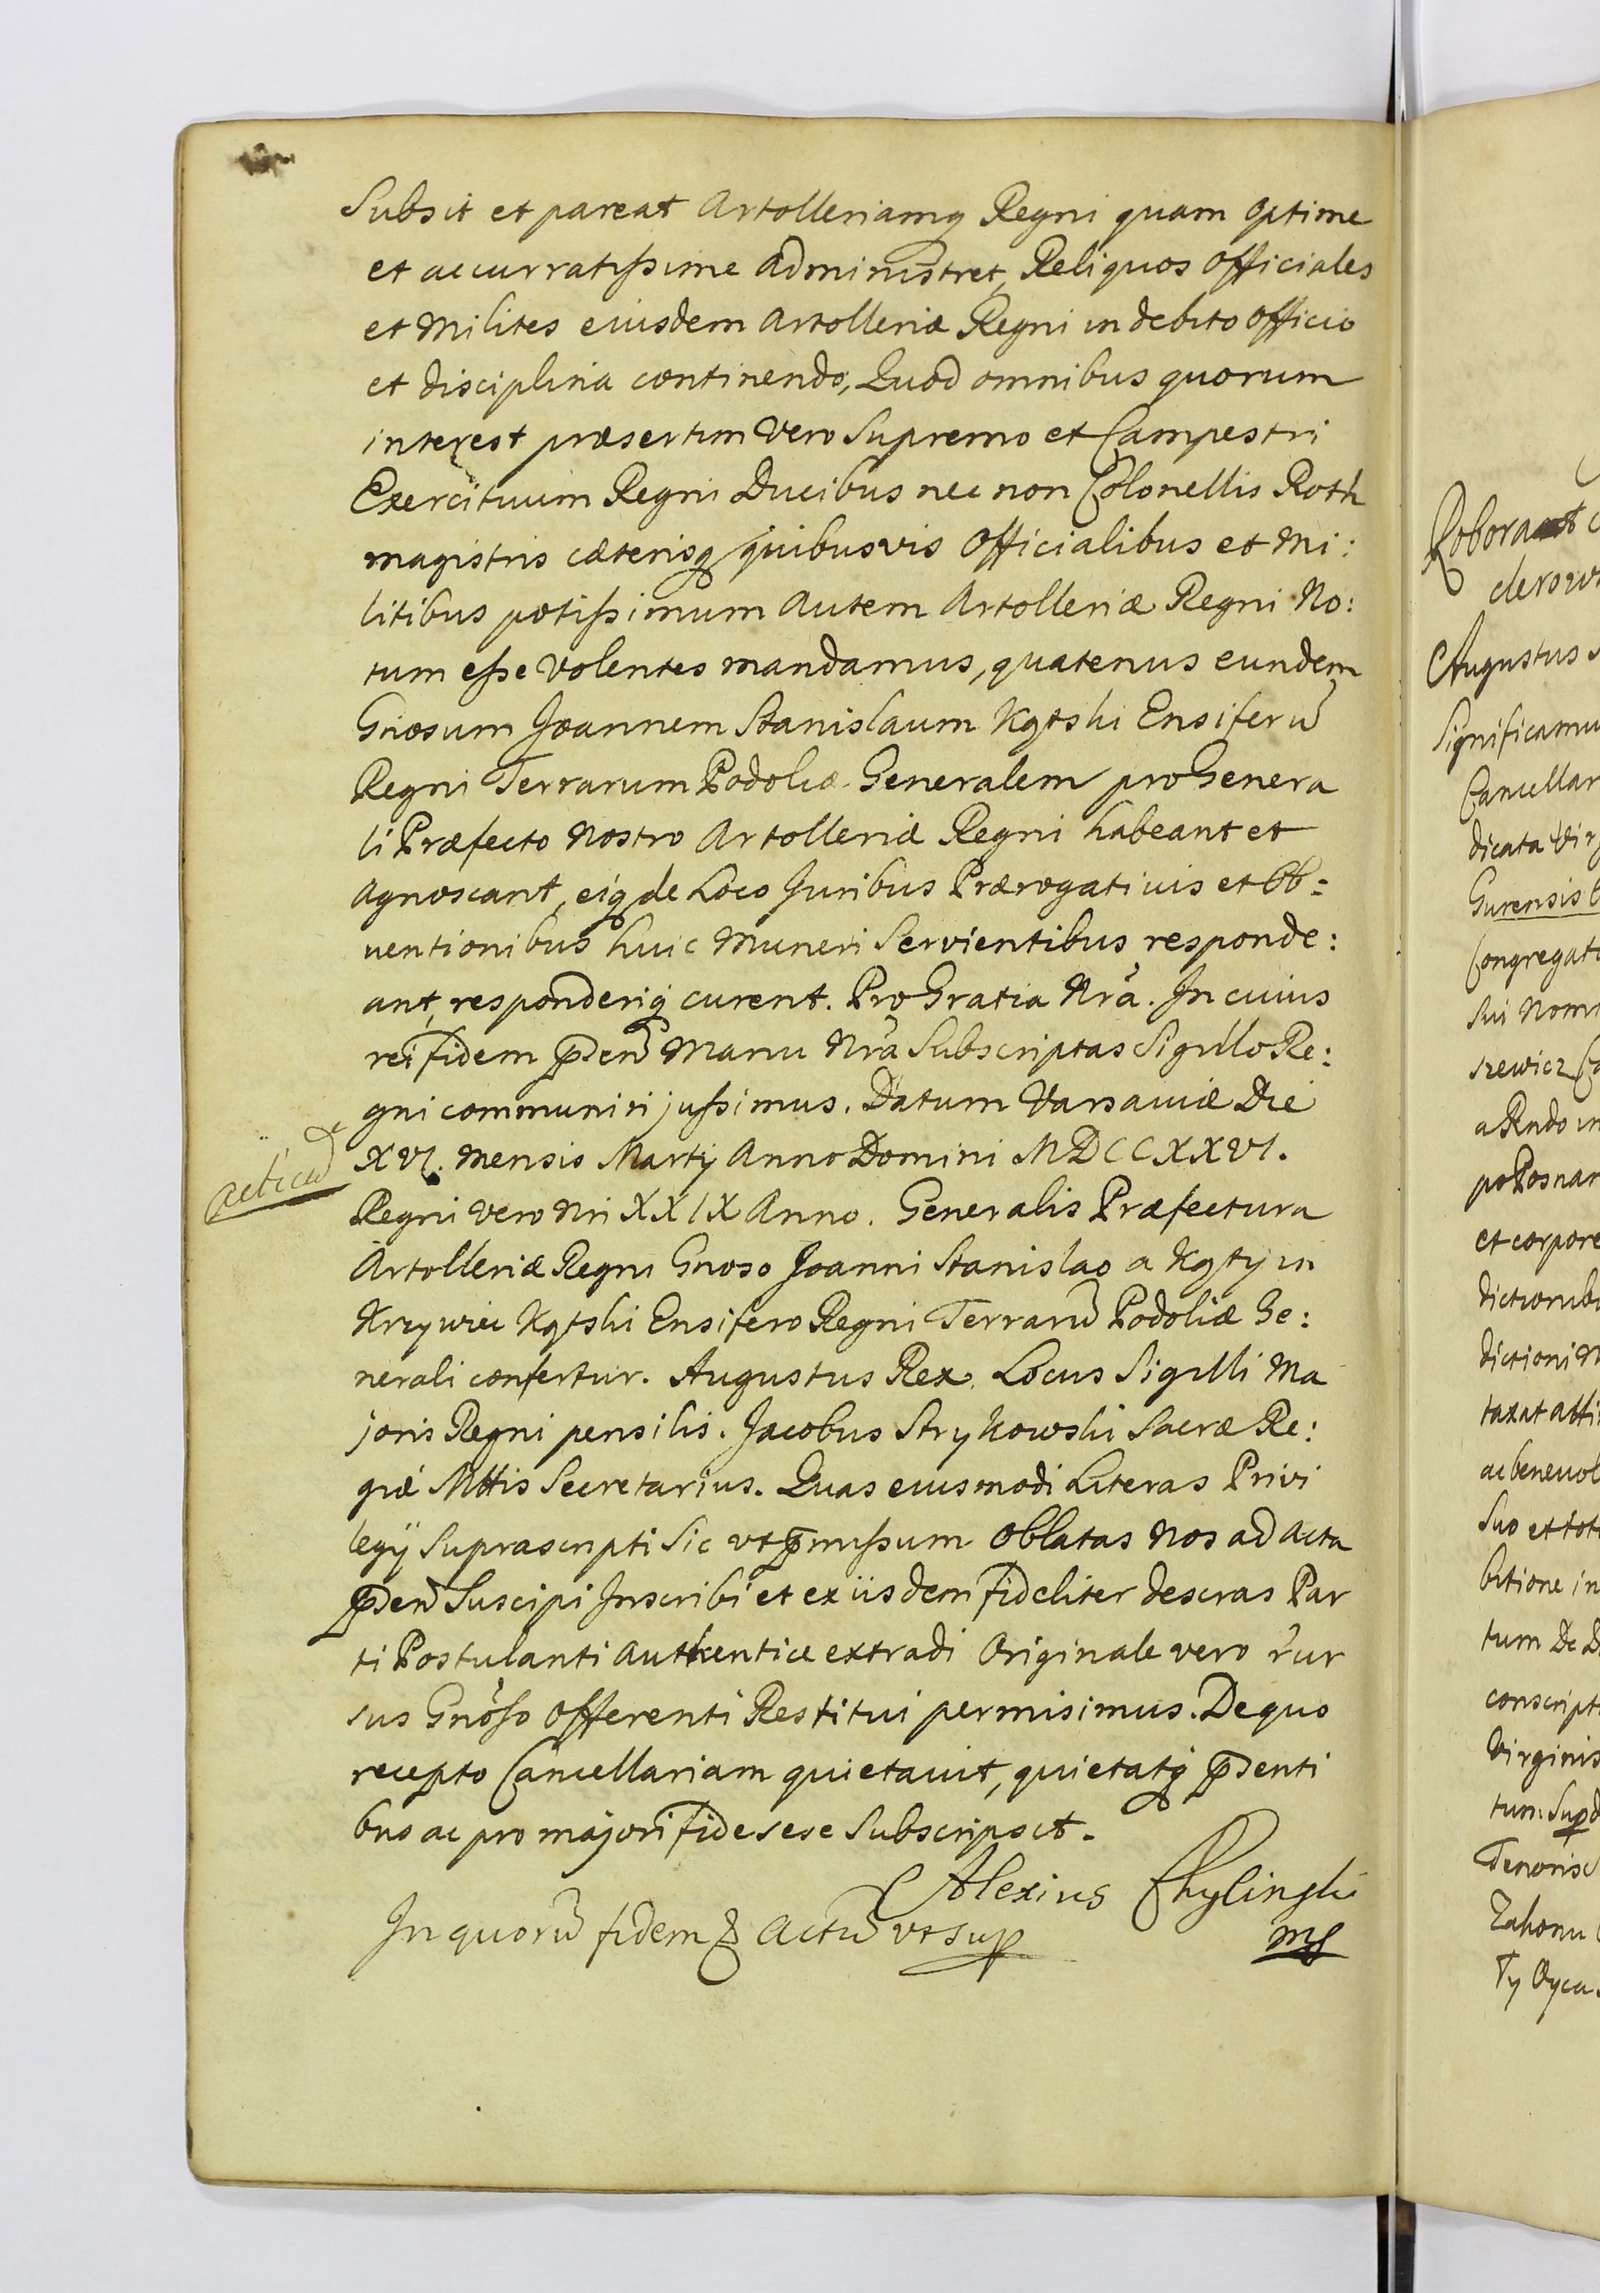 Subsit et pareat Artolleriamq Regni quam optime
et accurratissime administret, Reliquos officiales
et Milites eiusdem Artolleriæ Regni in debito officio
et disciplina continendo, Quod omnibus quorum
interest præsertim vero Supremo et Campestri
Exercituum Regni Ducibus nec non Colonellis Roth
magistris cæterisq quibusvis Officialibus et Mi:
litibus potissimum autem Artolleriæ Regni No:
tum esse volentes mandamus, quatenus eundem
Gnosum Joannem Stanislaum Kątski Ensiferū
Regni Terrarum Podoliæ Generalem pro Genera
li Præfecto Nostro Artolleriæ Regni habeant et
agnoscant, eiq de Loco Juribus Prærogativis et Ob:
ventionibus huic Muneri Servientibus responde:
ant, responderiq curent. Pro Gratia Nrã. In cuius
rei fidem p̃den̄ Manu Nrã Subscriptas Sigillo Re:
gni communiri jussimus. Datum Varsaviæ Die
XVI. mensis Martij Anno Domini MDCCXXVI.
acticañ
Regni vero Nri XXIX Anno. Generalis Præfectura
Artolleriæ Regni Gnoso Joanni Stanislao a Kąty in
Krzywcu Kątski Ensifero Regni Terrarū Podoliæ Ge:
nerali confertur. Augustus Rex. Locus Sigilli Ma
joris Regni pensilis. Jacobus Strykowski Sacræ Re:
giæ Mttis Secretarius. Quas eiusmodi Literas Privi
legij Suprascripti Sic vt p̄missum Oblatas Nos ad Acta
p̃den̄ Suscipi Inscribi et ex iisdem fideliter descras Par
ti Postulanti Authentice extradi Originale vero rur
sus Gnoso Offerenti Restitui permisimus. De quo
recepto Cancellariam quietavit, quietatq p̃denti
bus ac pro majori fide sese Subscripsit.
Alexius Chyliński
mp
In quorū fidem & Actū vt sup
Roborat
Augustus
Significamu
Cancellar
dicata Vir
Gurensis
Congregati
sui Nomi
szewicz
a Rndo in
po Posnan
et corpore
dictionibu
dictioni
taxat atti
ac benevol
suo et tot
bitione in
tum De D
conscript
Virginis
tum Supd
Tenoris
Zakonu
Ty Oyca